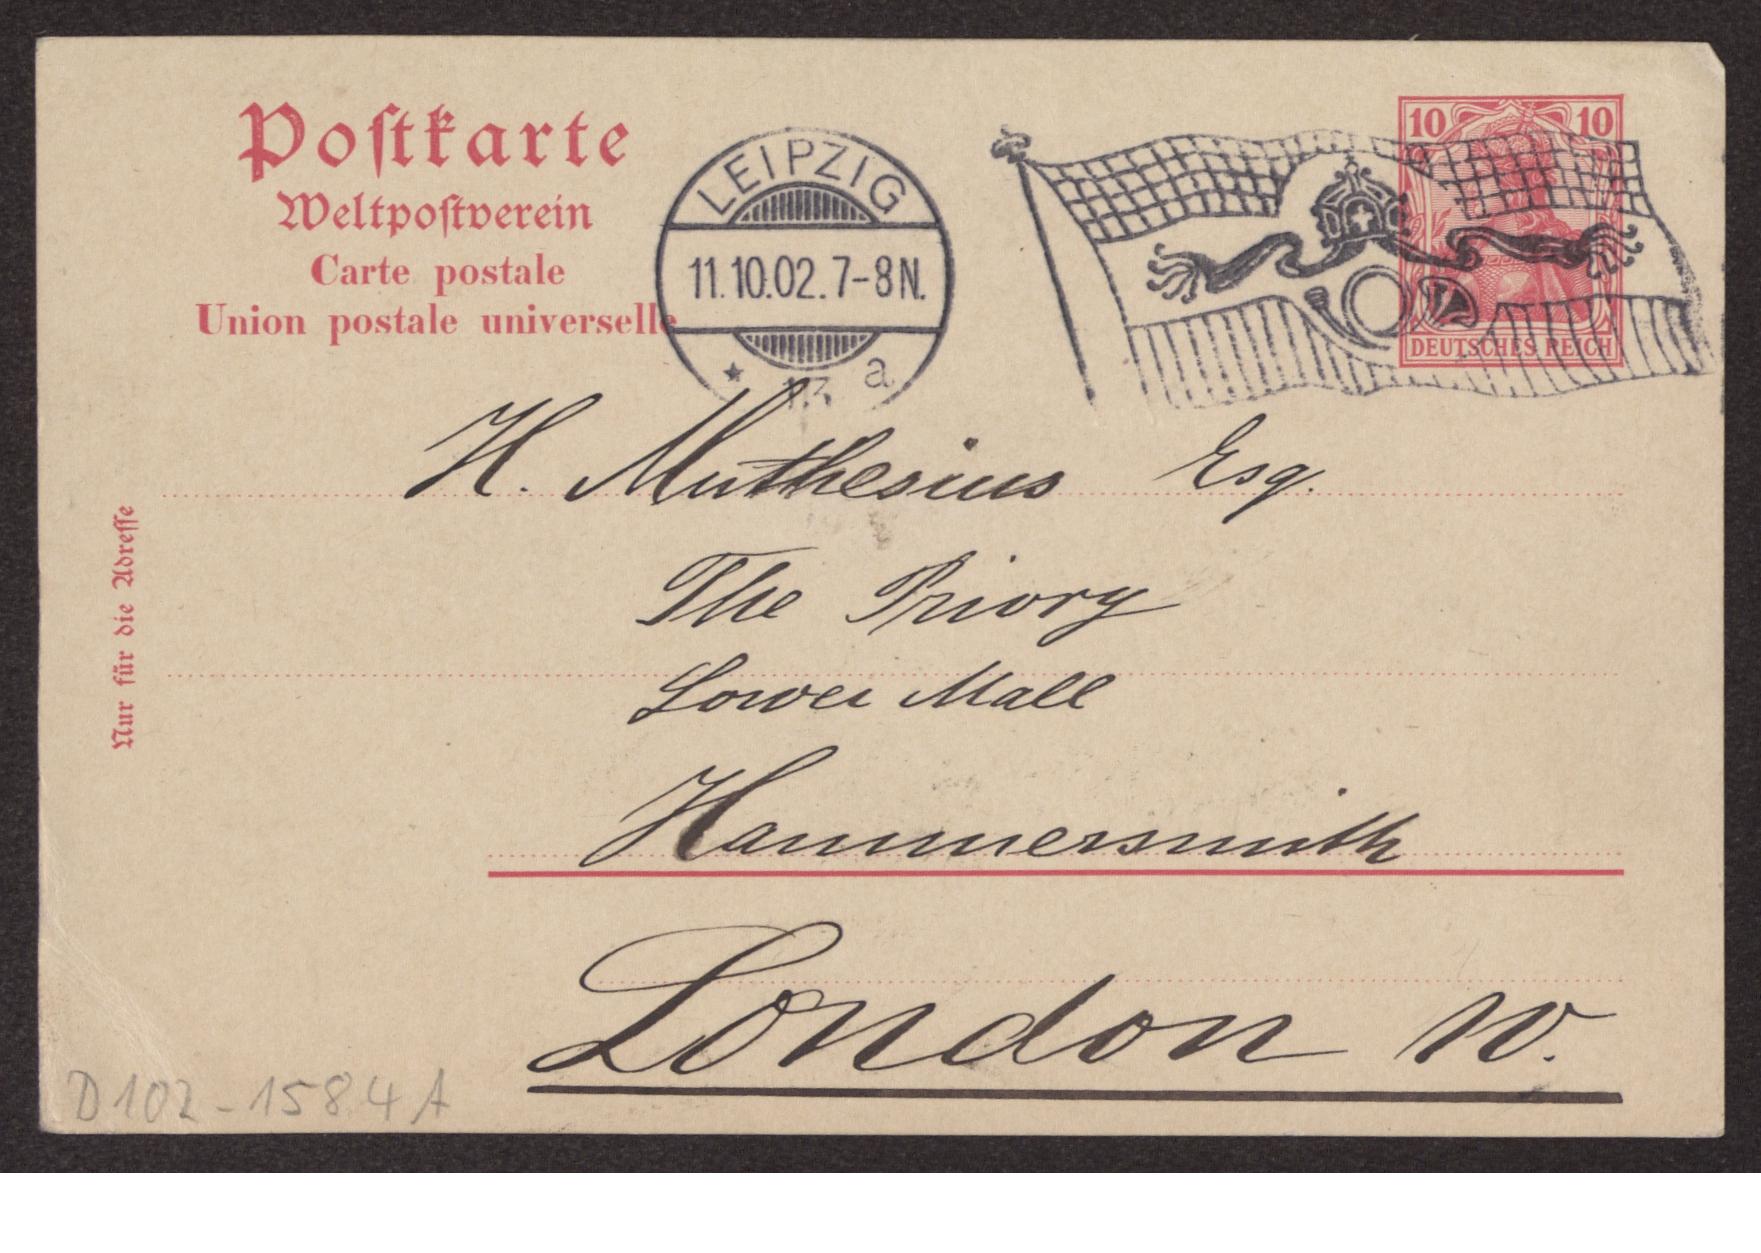 Postkarte
Weltpostverein
Carte postale
Union postale universelle
LEIPZIG
11.10.02.7-8N.
* 13 a
10 10
DEUTSCHES REICH
H. Muthesius Esq.
The Priory
Lower Mall
Hammersmith
London W.
Nur für die Adresse
D102-1584A